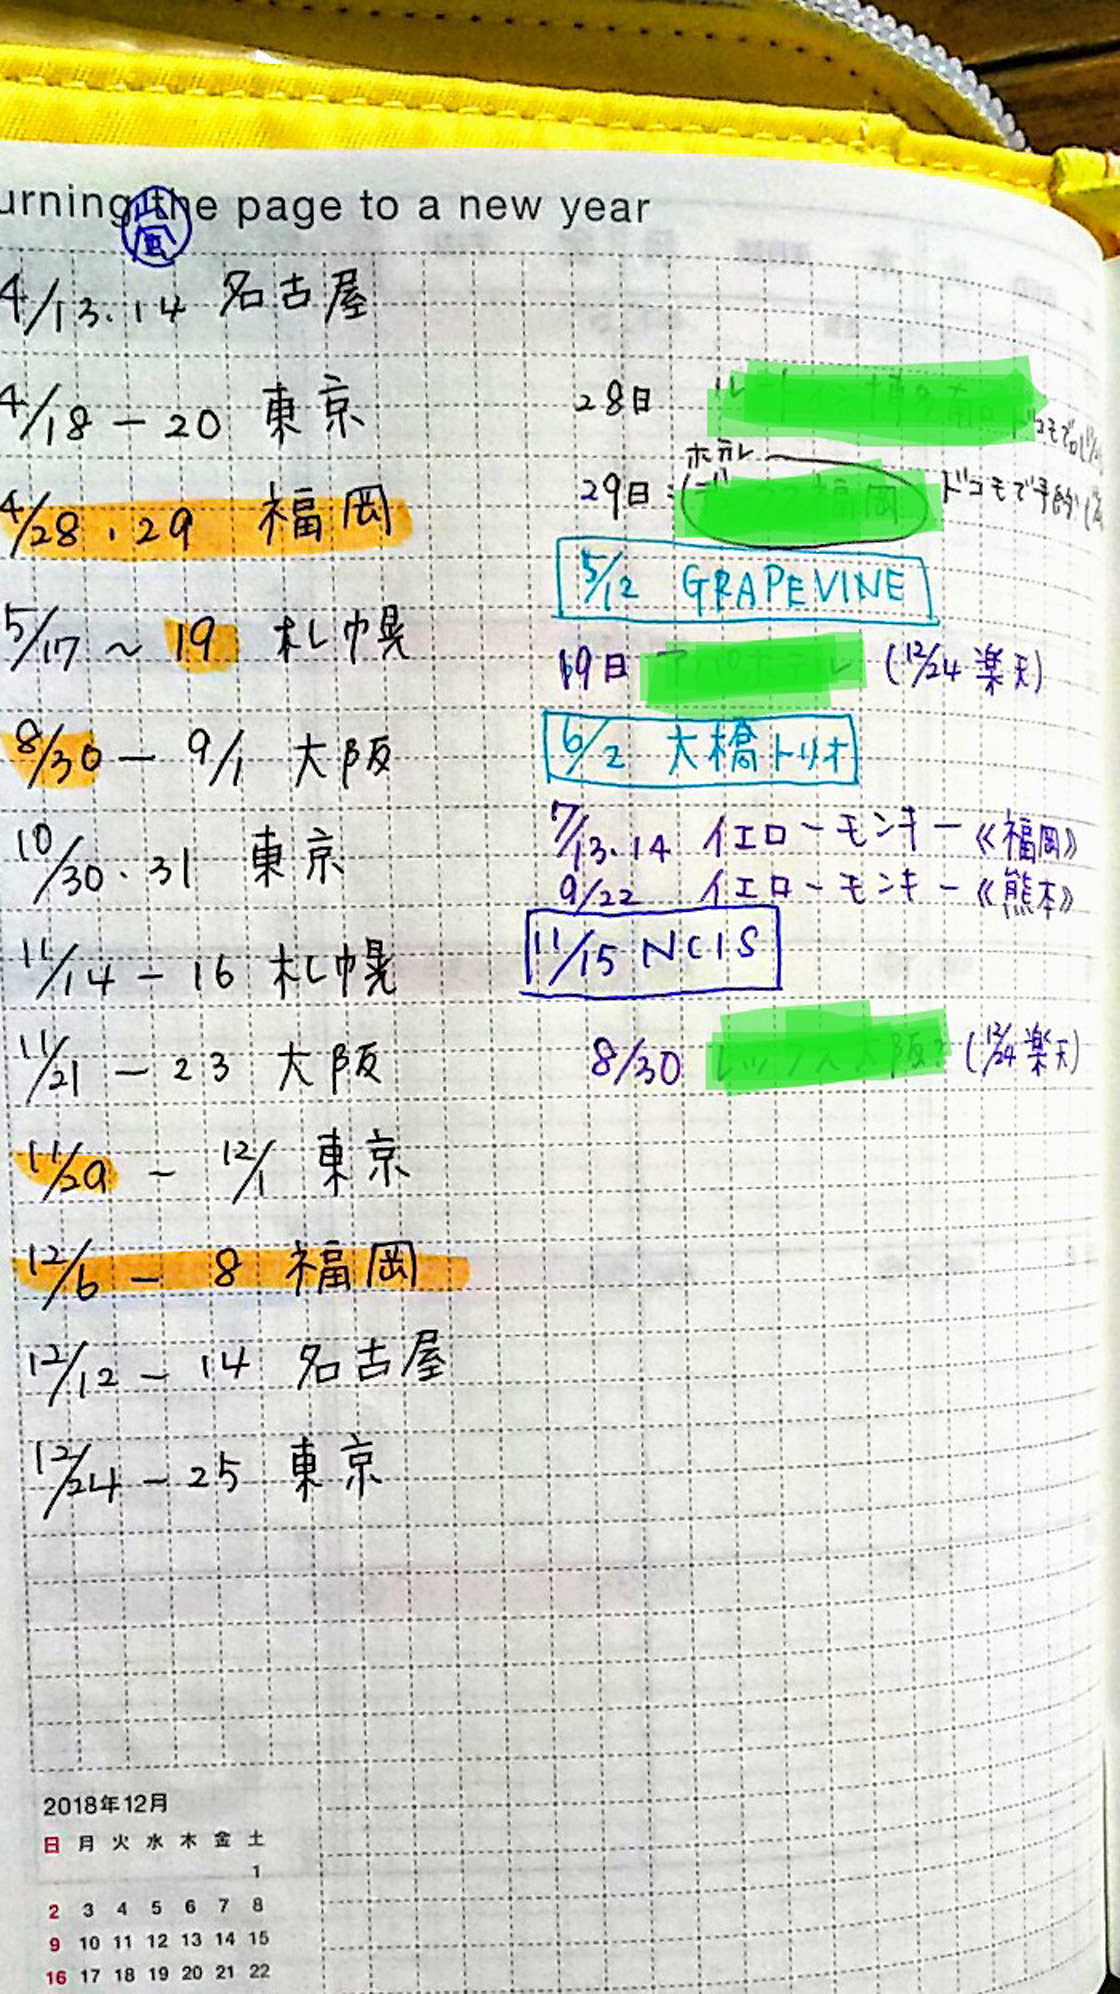 urning the page to a new year
嵐
4/13.14 名古屋
4/18 - 20 東京
4/28.29 福岡
5/17 ~ 19 札幌
8/30 - 9/1 大阪
10/30.31 東京
11/14 - 16 札幌
11/21 - 23 大阪
11/29 - 12/1 東京
12/6 - 8 福岡
12/12 - 14 名古屋
12/24 - 25 東京
28日
ホテル
29日: 福岡 ドコモで予約
5/12 GRAPEVINE
19日 アパホテル (12/24 楽天)
6/2 大橋トリオ
7/13.14 イエローモンキー《福岡》
9/22 イエローモンキー《熊本》
11/15 NCIS
8/30 (12/24 楽天)
2018年12月
日 月 火 水 木 金 土
1
2 3 4 5 6 7 8
9 10 11 12 13 14 15
16 17 18 19 20 21 22